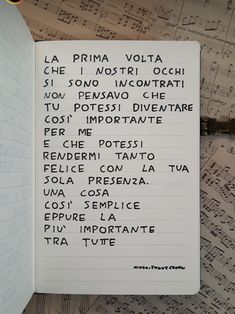 LA PRIMA VOLTA
CHE I NOSTRI OCCHI
SI SONO INCONTRATI
NON PENSAVO CHE
TU POTESSI DIVENTARE
COSÌ IMPORTANTE
PER ME
E CHE POTESSI
RENDERMI TANTO
FELICE CON LA TUA
SOLA PRESENZA.
UNA COSA
COSÌ SEMPLICE
EPPURE LA
PIU' IMPORTANTE
TRA TUTTE